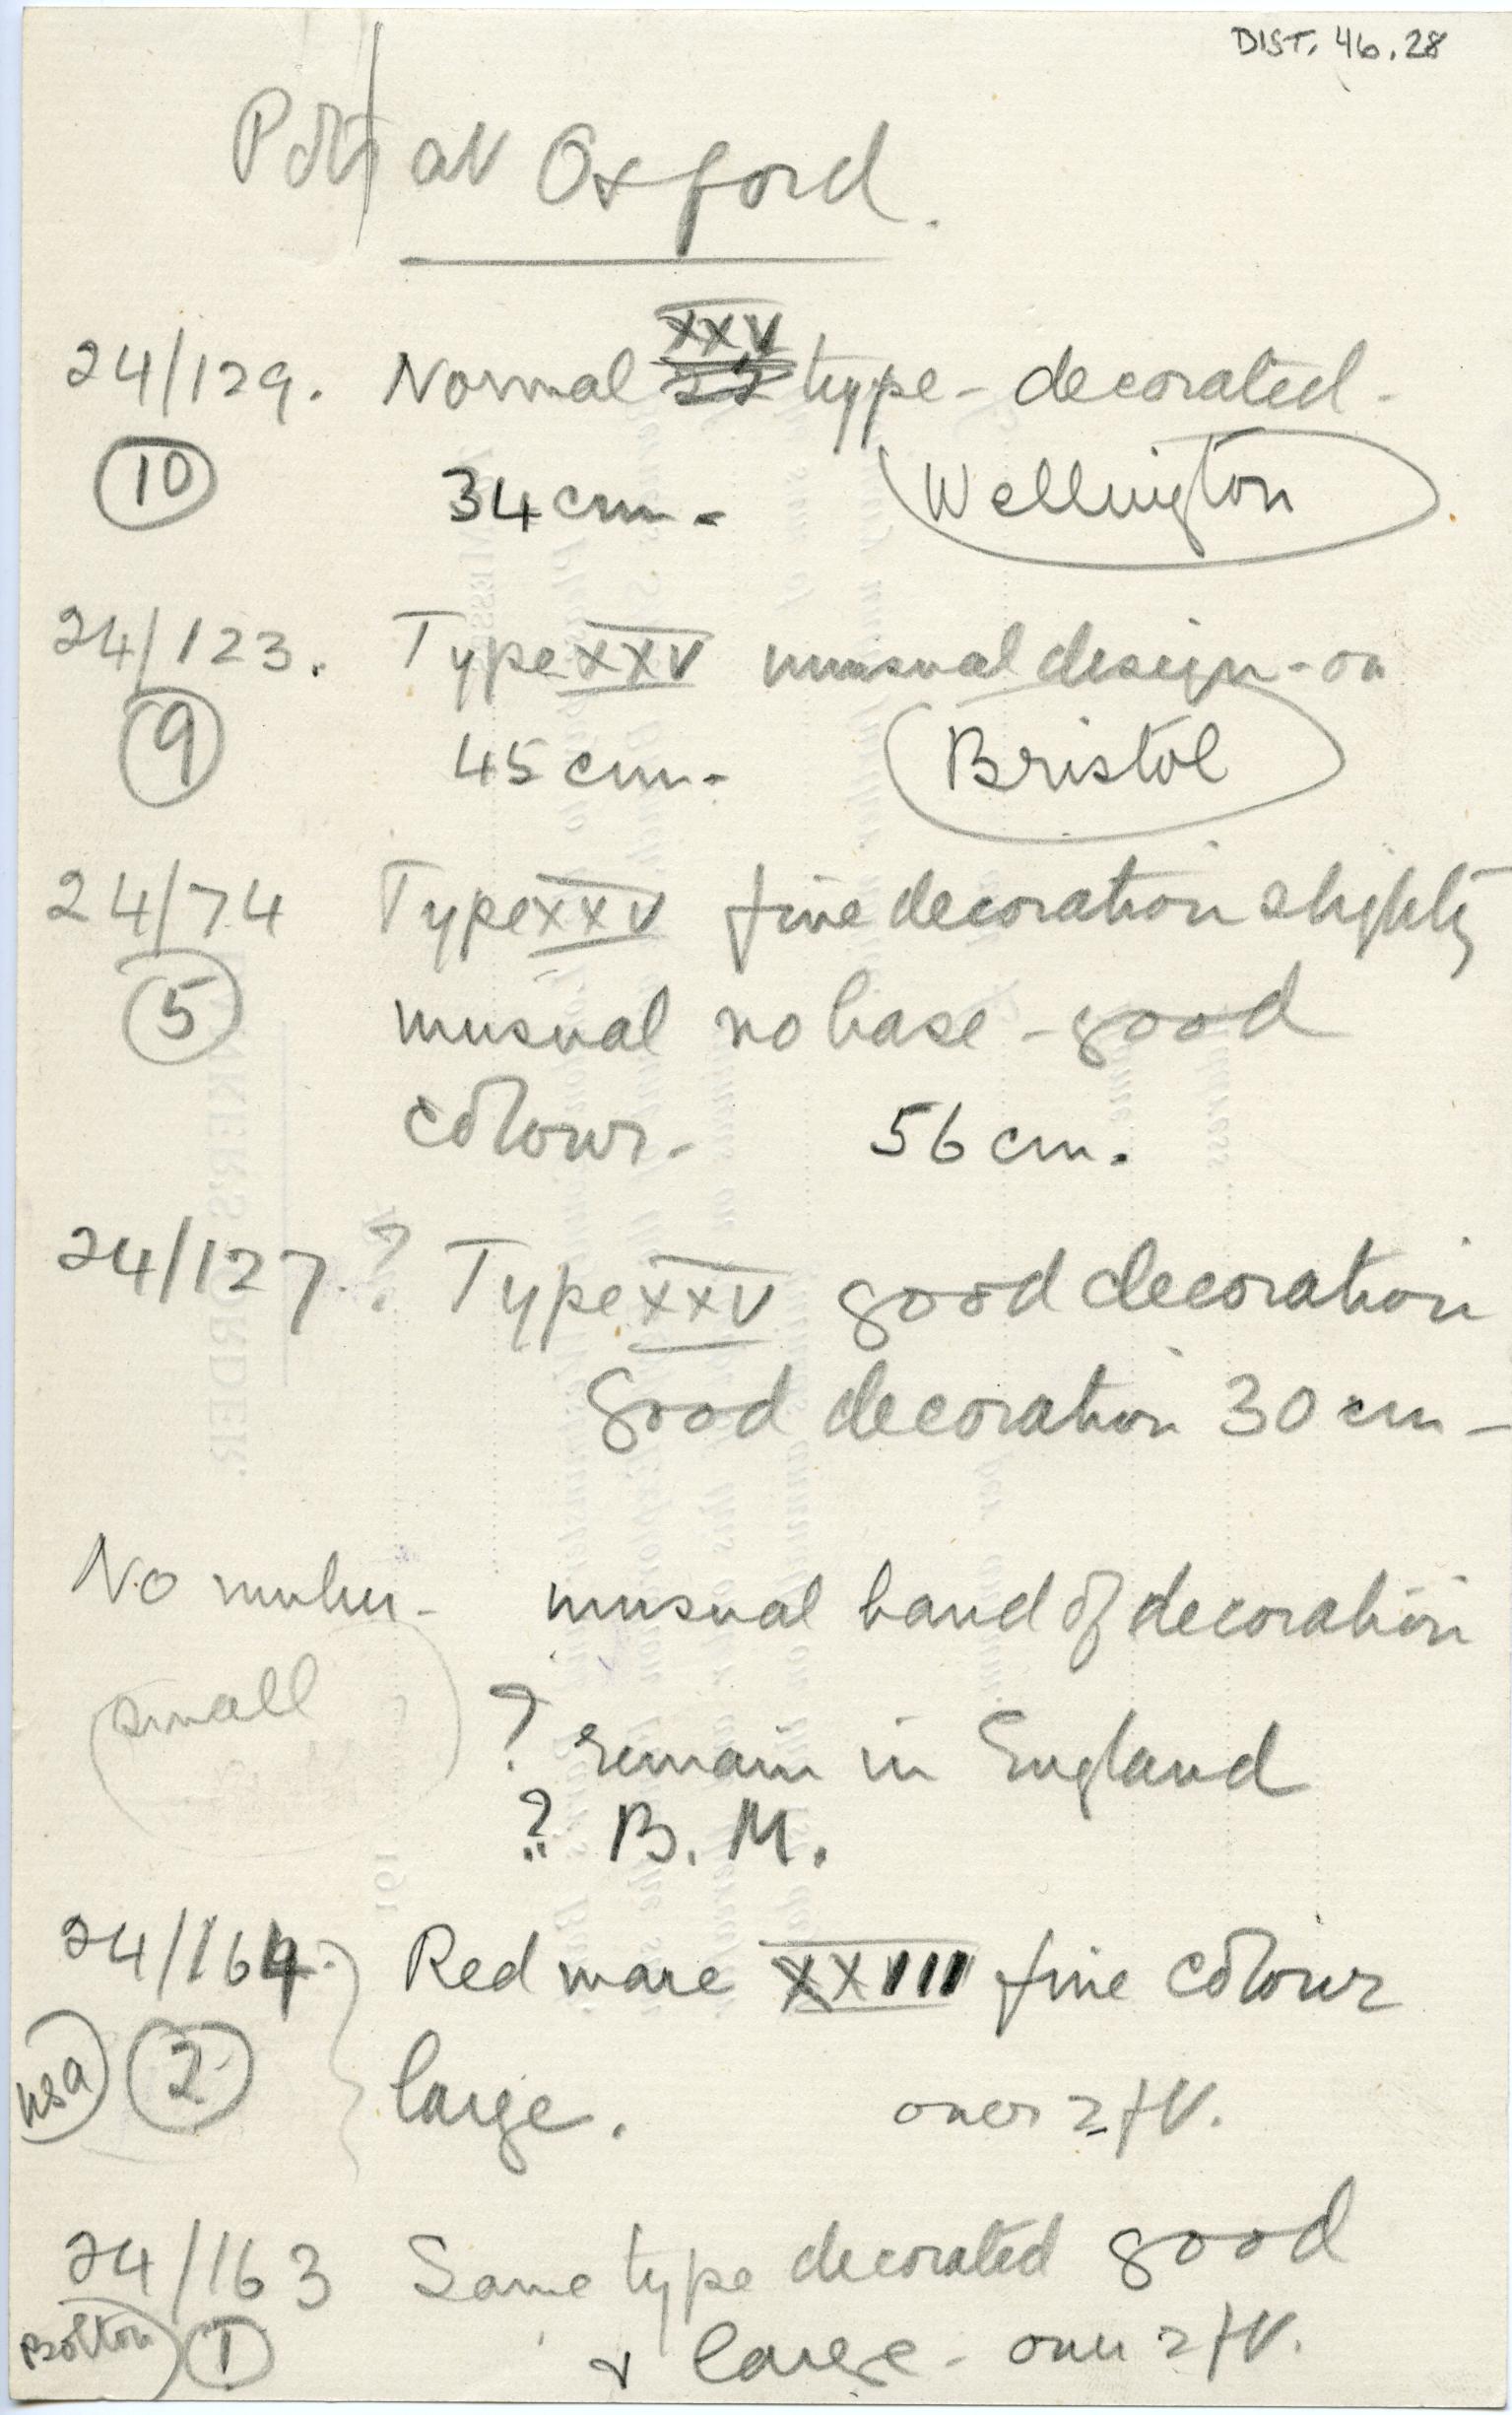 DIST. 46.28
Pots at Oxford.
24/129. Normal XXV type - decorated -
10 34 cm - Wellington
24/123. Type XXV unusual design - on
9 45 cm - Bristol
24/74 Type XXV fine decoration slightly
5 unusual no base - good
colour - 56 cm.
24/127. ? Type XXV good decoration
Good decoration 30 cm -
No number - unusual band of decoration
small ? remain in England
? B.M.
24/164. Red ware XXVIII fine colour
2 large. over 2 ft.
24/163 Same type decorated good
Bolton 1 & large - over 2 ft.